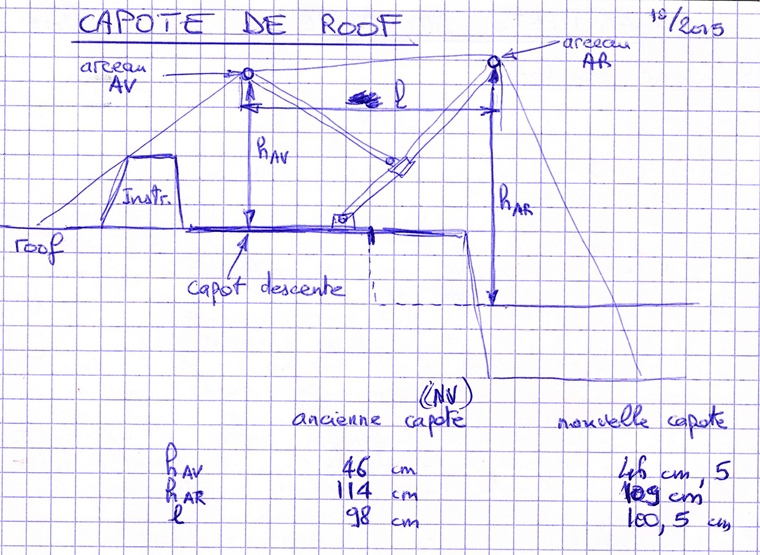 CAPOTE DE ROOF
10/2015
arceau AV
arceau AR
l
hAV
hAR
Instr.
roof
capot descente
(NV)
ancienne capote nouvelle capote
hAV 46 cm 46 cm, 5
hAR 114 cm 109 cm
l 98 cm 100, 5 cm